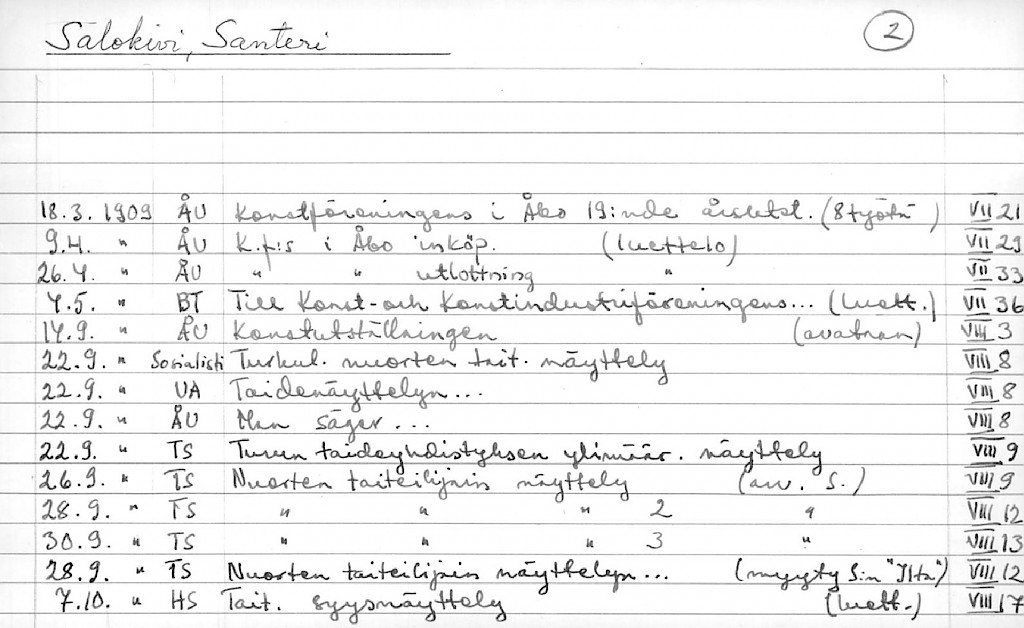 Salokivi, Santeri 2
18.3. 1909 ÅU Konstföreningens i Åbo 19:nde årsutst. (8 työtä) VII 21
9.4. " ÅU K.f:s i Åbo inköp. (luettelo) VII 29
26.4. " ÅU " " utlottning " VII 33
4.5. " BT Till Konst- och Konstindustriföreningens... (luett.) VII 36
14.9. " ÅU Konstutställningen (avataan) VIII 3
22.9. " Sosialisti Turkul. nuorten tait. näyttely VIII 8
22.9. " UA Taidenäyttelyn... VIII 8
22.9. " ÅU Man säger... VIII 8
22.9. " TS Turun taideyhdistyksen ylimäär. näyttely VIII 9
26.9. " TS Nuorten taiteilijain näyttely (arv. S.) VIII 9
28.9. " TS " " " 2 " VIII 12
30.9. " TS " " " 3 " VIII 13
28.9. " TS Nuorten taiteilijain näyttelyn... (myyty S:n "Ilta") VIII 12
7.10. " HS Tait. syysnäyttely (luett.) VIII 17